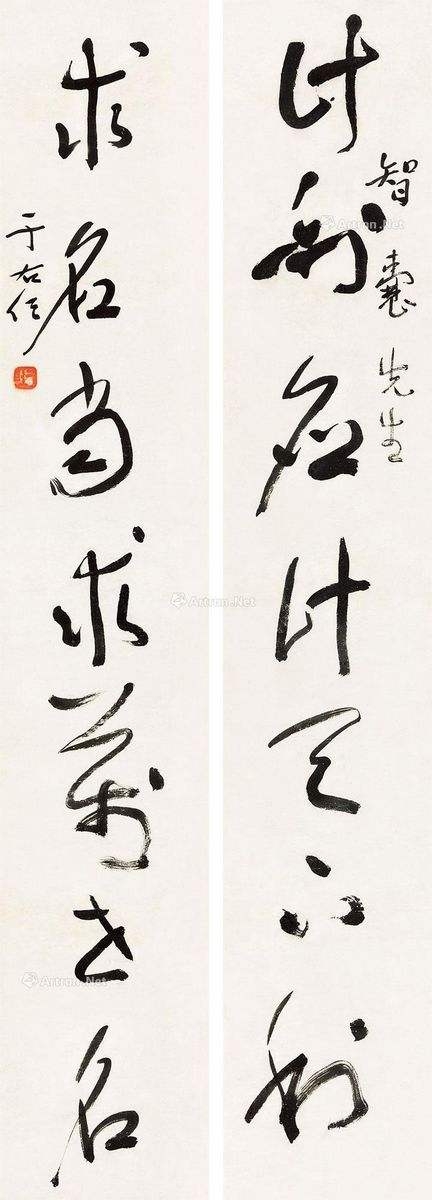 計利應計天下利
智囊先生
求名當求萬世名
于右任
Artron.Net
Artron.Net
Artron.Net